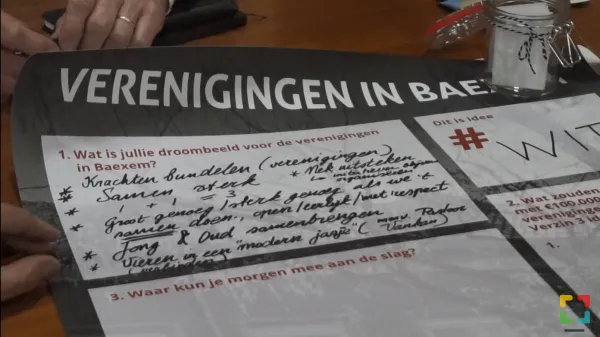 VERENIGINGEN IN BAEXE
1. Wat is jullie droombeeld voor de verenigingen
in Baexem?
* Krachten bundelen (verenigingen)
* Samen sterk * Nek uitsteken
1 + 1 = 3
* Groot genoeg / sterk genoeg als we 't
samen doen, open/eerlijk/met respect
* Jong & Oud samenbrengen
* Vieren in een "modern jasje" (m.m.v. Pastoor
Vankan)
3. Waar kun je morgen mee aan de slag?
Dit is idee
# WIT
2. Wat zouden
met €100.000
verenigingen
Verzin 3
1.